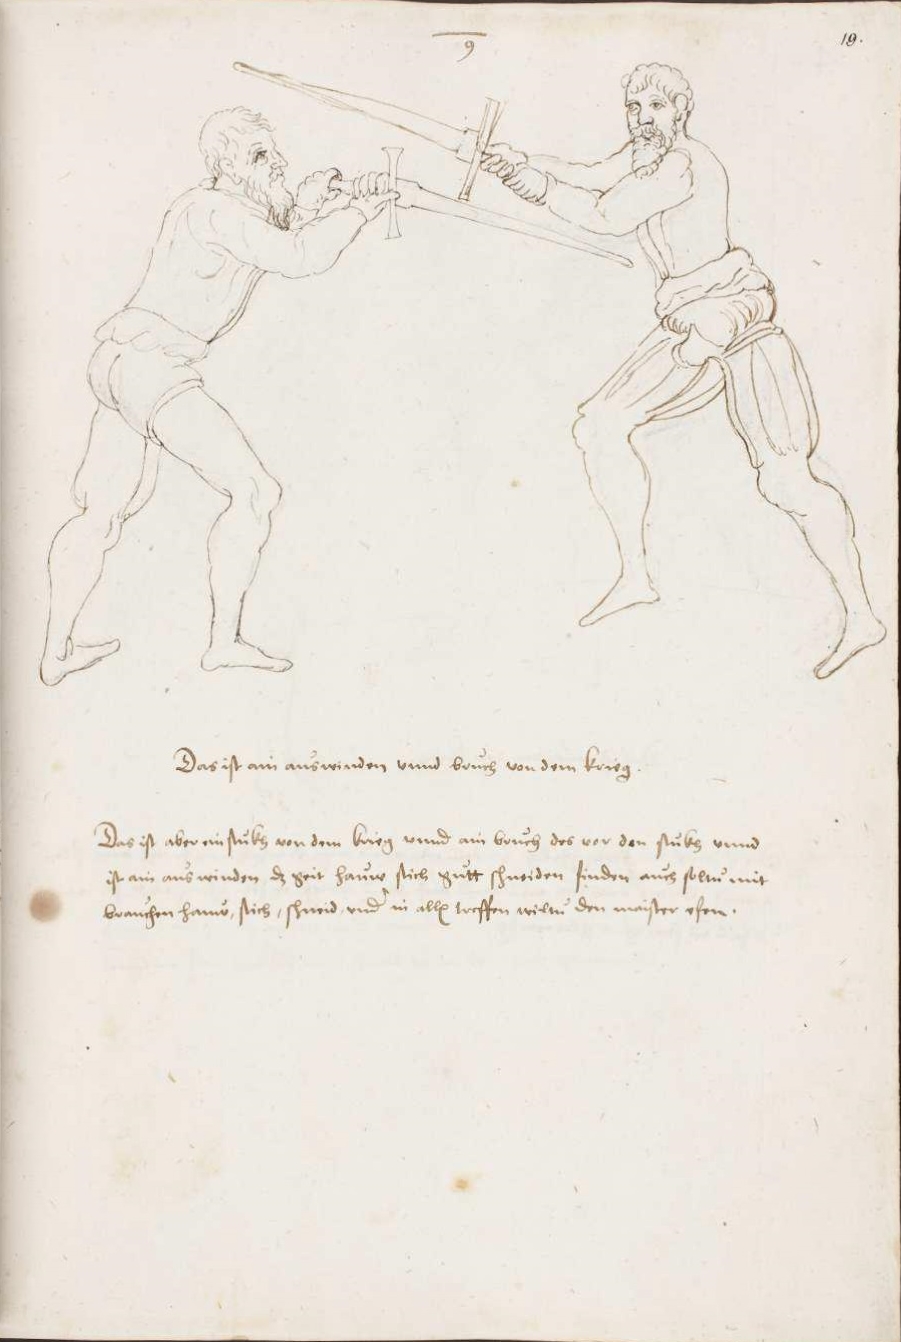 9
19.
Das ist ain auswinden vnnd bruch von dem krieg.
Das ist aber ein stukh von dem krieg vnnd ain bruch des vor den stukh vnnd
ist ain aus winden dz geit hauw stich gutt schneiden finden auch soltu mit
brauchen hauw, stich, schneid, vnd in all treffen wiltu den maister